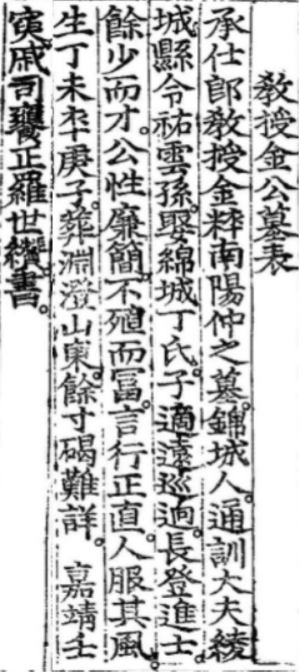 敎授金公墓表
承仕郎敎授金粹南陽仲之墓。錦城人。通訓大夫綾
城縣令祐雲孫。娶綿城丁氏。子適遠巡逈。長登進士。
餘少而才。公性廉簡。不殖而冨。言行正直。人服其風。
生丁未卒庚子。葬淵澄山東。餘寸碣難詳。 嘉靖壬
寅。戚司饔正羅世纘書。